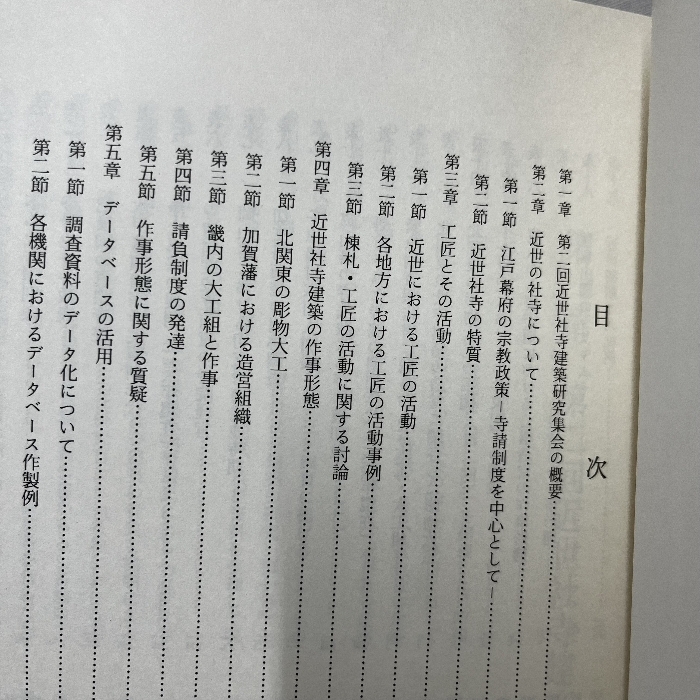 目次
第一章　第二回近世社寺建築研究集会の概要
第二章　近世の社寺について
第一節　江戸幕府の宗教政策－寺請制度を中心として－
第二節　近世社寺の特質
第三章　工匠とその活動
第一節　近世における工匠の活動
第二節　各地方における工匠の活動事例
第三節　棟札・工匠の活動に関する討論
第四章　近世社寺建築の作事形態
第一節　北関東の彫物大工
第二節　加賀藩における造営組織
第三節　畿内の大工組と作事
第四節　請負制度の発達
第五節　作事形態に関する質疑
第五章　データベースの活用
第一節　調査資料のデータ化について
第二節　各機関におけるデータベース作製例